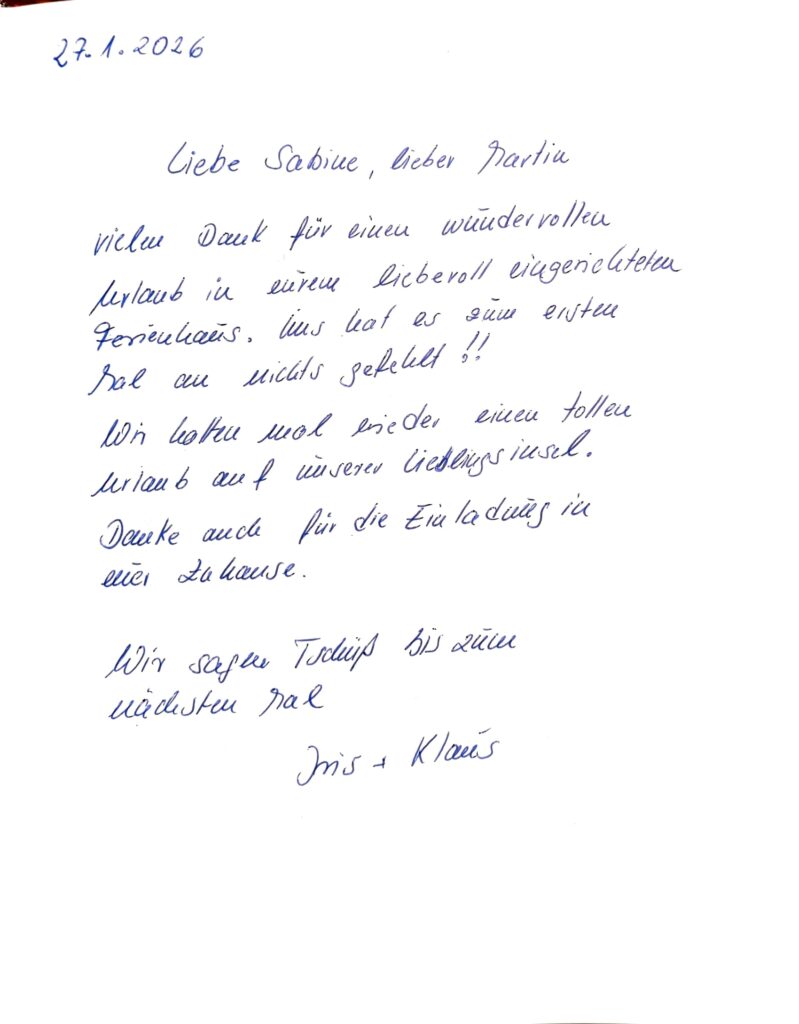 27.1.2026
Liebe Sabine, lieber Martin
vielen Dank für einen wundervollen
Urlaub in eurem liebevoll eingerichteten
Ferienhaus. Uns hat es zum ersten
Mal an nichts gefehlt !!
Wir hatten mal wieder einen tollen
Urlaub auf unserer Lieblingsinsel.
Danke auch für die Einladung in
euer Zuhause.
Wir sagen Tschüß bis zum
nächsten Mal
Iris + Klaus